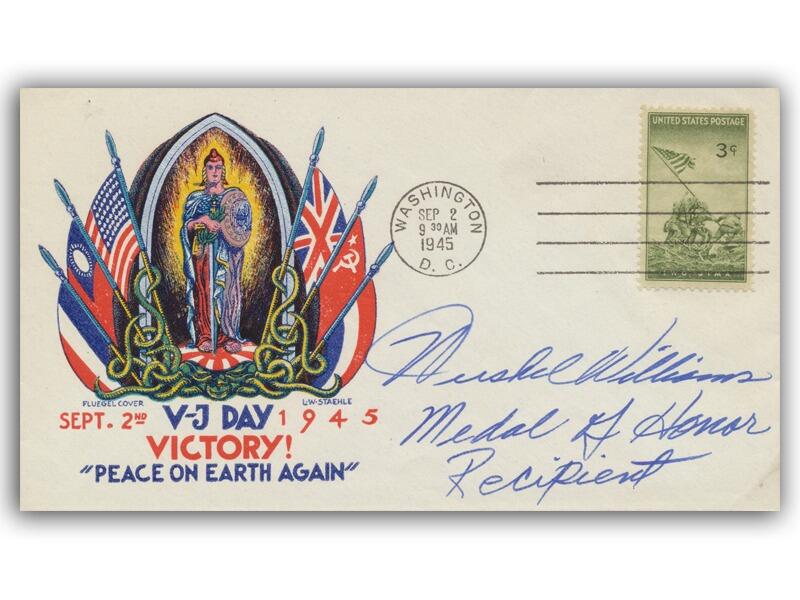 UNITED STATES POSTAGE
3¢
WASHINGTON
SEP 2
9 30 AM
1945
D. C.
FLUEGEL COVER
L·W·STAEHLE
SEPT. 2ND V-J DAY 1945
VICTORY!
"PEACE ON EARTH AGAIN"
Hershel Williams
Medal Of Honor
Recipient